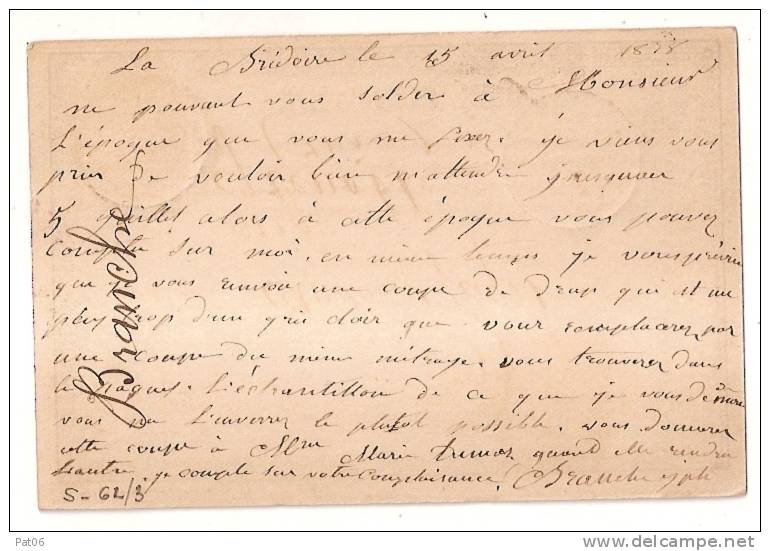 La Bridoire le 15 avril 1878
Monsieur
ne pouvant vous solder à
l'époque que vous me fixez. je viens vous
prier de vouloir bien m'attendre jusquau
5 juillet alors à cette époque vous pouvez
compter sur moi. en même temps je vous préviens
que je vous envoie une coupe de drap qui est un
peu trop d'un gris clair que vous remplacerez par
une coupe du même métrage. vous trouverez dans
le paquet l'échantillon de ce que je vous demande
vous me l'auverrez le plutot possible. vous donnerez
cette coupe à Mme Marie quand elle rendra
l'autre. je compte sur votre complaisance! Branche jph
Branche
S-62/3
Pat06
delcampe.net